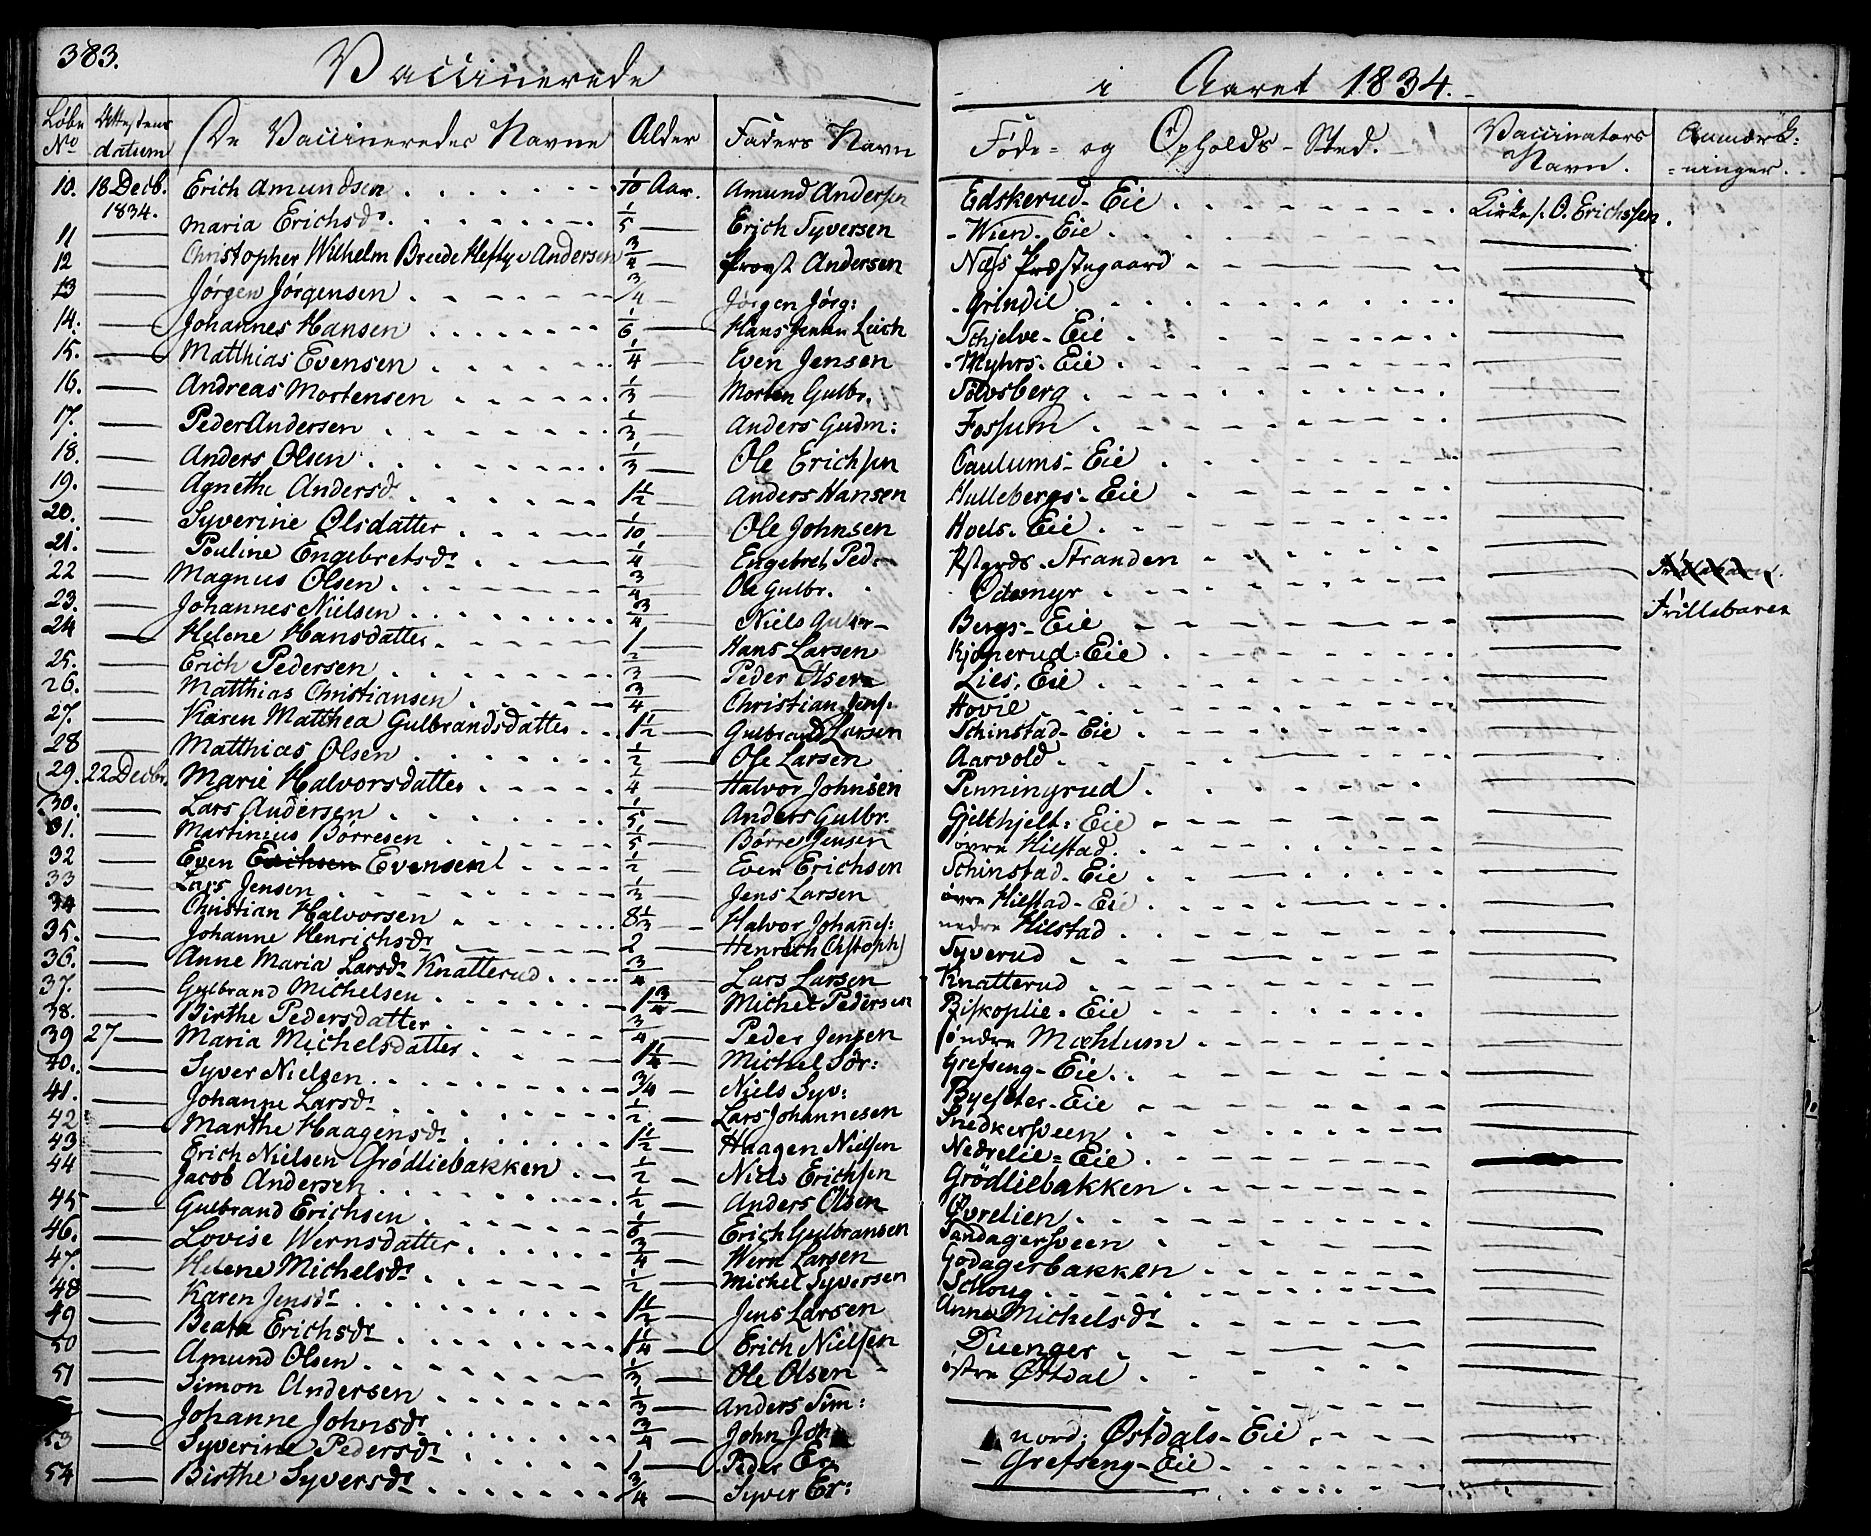 383. Vaccinerede i Aaret 1834.
Løbe No Attestens datum De Vaccineredes Navne Alder Faders Navn Føde- og Opholds-Sted. Vaccinators Navn. Anmærk:ninger.
10. 18 Decb. 1834. Erich Amundsen 1/10 Aar. Amund Andersen Edskerud-Eie Kirkes. O. Erichssen.
11 — Maria Erichsdr. 1/5 — Erich Syversen - Wien-Eie —
12 — Christopher Wilhelm Brede Heftye Andersen 3/4 — Provst Andersen Næs Præstegaard —
13 — Jørgen Jørgensen 3/4 — Jørgen Jørg: - Grindie —
14. — Johannes Hansen 1/6 — Hans Leich Schjelve-Eie —
15. — Matthias Evensen 1/4 — Even Jensen - Myhrs-Eie —
16. — Andreas Mortensen 1/3 — Morten Gulbr. Tølvsberg —
17. — Peder Andersen 1/3 — Anders Gudm: Fossum —
18. — Anders Olsen 1/3 — Ole Erichsen Caulums-Eie —
19. — Agnethe Andersdr 1 1/2 — Anders Hansen Hullebergs-Eie —
20. — Syverine Olsdatter 1/10 — Ole Johnsen Hoels-Eie —
21. — Pouline Engebretsdr 1/4 — Engebret Ped: Stranden —
22 — Magnus Olsen 3/4 — Ole Gulbr. Odemyr —
23. — Johannes Nielsen 3/4 — Niels Bergs-Eie — Frillebaren
24 — Helene Hansdatter 1 — Hans Larsen Kjønerud-Eie —
25. — Erich Pedersen 1/3 — Peder Olsen Lies-Eie —
26. — Matthias Christiansen 3/4 — Christian Jens. Hovie —
27. — Karen Matthea Gulbrandsdatter 1 1/2 — Gulbrand Larsen Schinstad-Eie —
28 — Matthias Olsen 1/2 — Ole Larsen Aarvold —
29. 22 Decbr. Marie Halvorsdatter 1/4 — Halvor Johnsen Penningrud —
30. — Lars Andersen 1/5 — Anders Gulbr. Gjelthjelt-Eie —
31. — Martinius Børresen 1/5 — Børre Jensen øvre Hilstad —
32 — Even Erichsen Evensen 1/2 — Even Erichsen Schinstad-Eie —
33 — Lars Jensen 1/3 — Jens Larsen øvre Hilstad-Eie —
34 — Christian Halvorsen 8 1/3 — Halvor Johannes: nedre Hilstad —
35. — Johanne Henrichsdr 2 — Henrich Christoph) Tyverud —
36. — Anne Maria Larsdr Knatterud 3/4 — Lars Larsen Knatterud —
37. — Gulbrand Michelsen 1 3/4 — Michel Pedersen Biskoplie-Eie —
38. — Birthe Pedersdatter 3/4 — Peder Jensen søndre Mæhlum —
39 27 — Maria Michelsdatter 1 1/4 — Michel Sør: Grefseng-Eie —
40. — Syver Nielsen 3/4 — Niels Syv: Byeseter-Eie —
41. — Johanne Larsdr 1/2 — Lars Johannesen Snedkersveen —
42 — Marthe Haagensdr 1 1/2 — Haagen Nielsen Nedrelie-Eie —
43 — Erich Nielsen Grødliebakken 1/2 — Niels Erichsen Grödliebakken —
44 — Jacob Andersen 1/2 — Anders Olsen Øvrelien —
45 — Gulbrand Erichsen 1/6 — Erich Gulbransen Sandagersveen —
46. — Lovise Wernsdatter 3/4 — Wern Larsen Godagerbakken —
47. — Helene Michelsdr 1/2 — Michel Syversen Schoug —
48 — Karen Jensdr 1 1/2 — Jens Larsen Anne Michelsdr —
49 — Beata Erichsdr 1 1/4 — Erich Nielsen Duenger —
50 — Amund Olsen 1/3 — Ole Olsen østre Østdal —
51 — Simon Andersen 1/3 — Anders Sim: —
— Johanne Johnsdr 3/4 — John Joh nord: Østdals-Eie —
53 — Syverine Pedersdr 1 — Peder Er: - Grefseng-Eie —
54 — Birthe Syversdr 3/4 — Syver Er: —